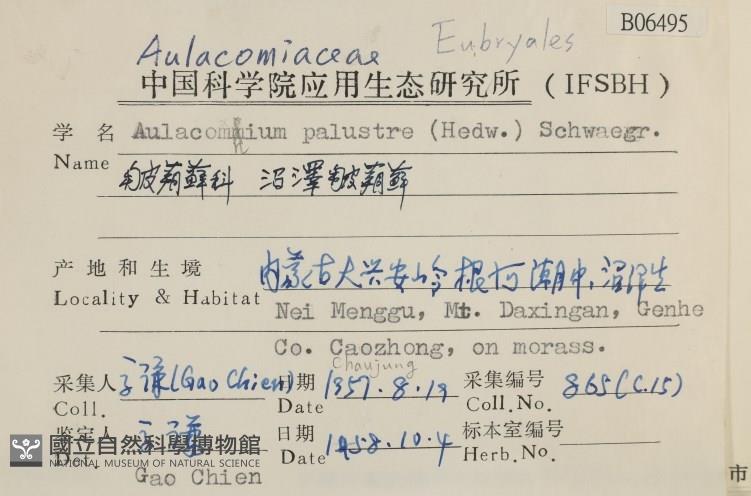 B06495
Aulacomiaceae Eubryales
中国科学院应用生态研究所 (IFSBH)
学名 Aulacomnium palustre (Hedw.) Schwaegr.
Name
皱蒴藓科 沼澤皱蒴藓
产地和生境 内蒙古大兴安岭根河潮中,沼泽生
Locality & Habitat
Nei Menggu, Mt. Daxingan, Genhe
Co. Caozhong, on morass.
Chaujung
采集人 (Gao Chien) 日期 1957.8.19 采集编号 865(C.15)
Coll. Date Coll.No.
鉴定人 日期 1958.10.4 标本室编号
Det. Date Herb.No.
Gao Chien
國立自然科學博物館
NATIONAL MUSEUM OF NATURAL SCIENCE
市